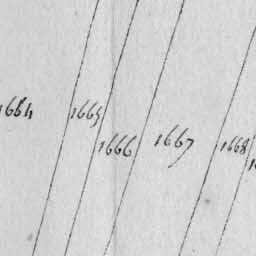 1664
1665
1666
1667
1668